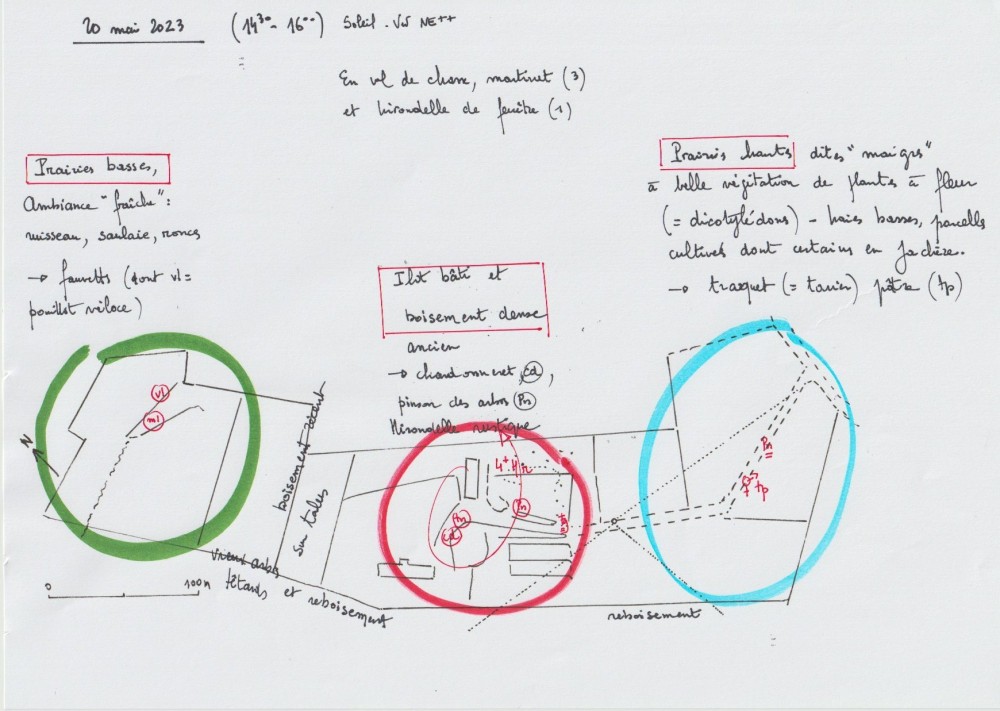 20 mai 2023 (14³⁰- 16⁰⁰) Soleil - Vt NE++
En vol de chasse, martinet (3)
et hirondelle de fenêtre (1)
Prairies basses,
Ambiance "fraîche" :
ruisseau, saulaie, ronces
→ fauvettes (dont vl =
pouillot véloce)
Ilot bâti et
boisement dense
ancien
→ chardonneret cd,
pinson des arbres Pn
Hirondelle rustique
Prairies hautes dites "maigres"
à belle végétation de plantes à fleur
(= dicotylédons) - haies basses, parcelles
cultivées dont certaines en jachère.
→ traquet (= tarier) pâtre (tp)
vl
ml
N
boisement récent
sur talus
4+ Hr
Pn
Pn
cd
Pn
tp
vieux arbres
têtards et reboisement
reboisement
0 100m